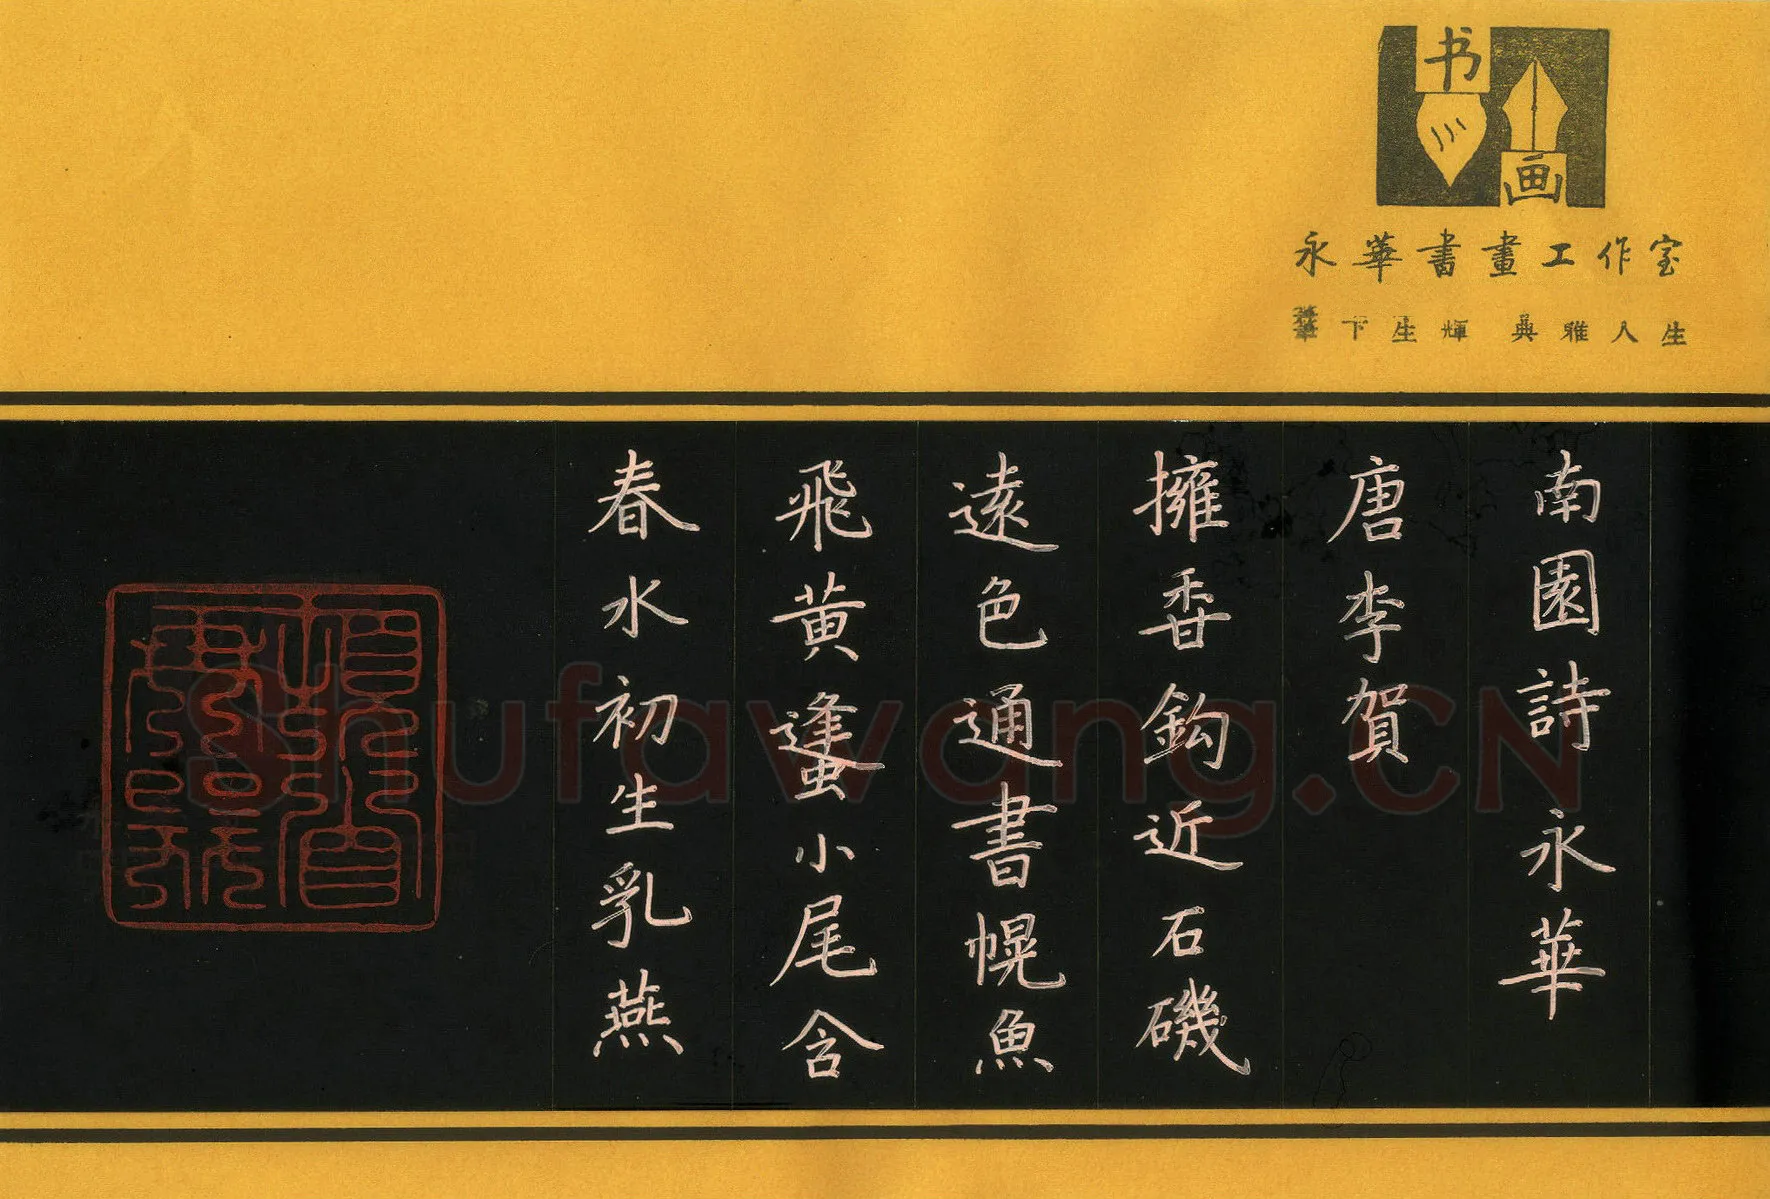 书
画
永華書畫工作室
筆下生輝 典雅人生
春水初生乳燕
飛黄䗬小尾含
遠色通書幌魚
擁香鈎近石磯
唐李賀
南園詩永華
Shufawang.CN